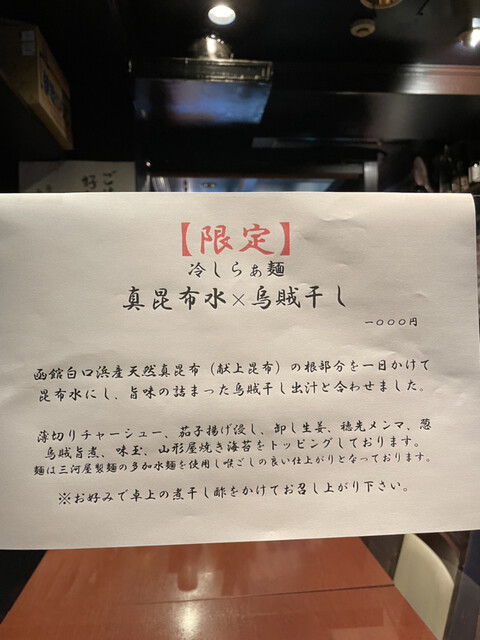 【限定】
冷しらぁ麺
真昆布水×烏賊干し
一〇〇〇円
函館白口浜産天然真昆布（献上昆布）の根部分を一日かけて
昆布水にし、旨味の詰まった烏賊干し出汁と合わせました。
薄切りチャーシュー、茄子揚げ浸し、卸し生姜、穂先メンマ、葱
烏賊旨煮、味玉、山形屋焼き海苔をトッピングしております。
麺は三河屋製麺の多加水麺を使用し喉ごしの良い仕上がりとなっております。
※お好みで卓上の煮干し酢をかけてお召し上がり下さい。